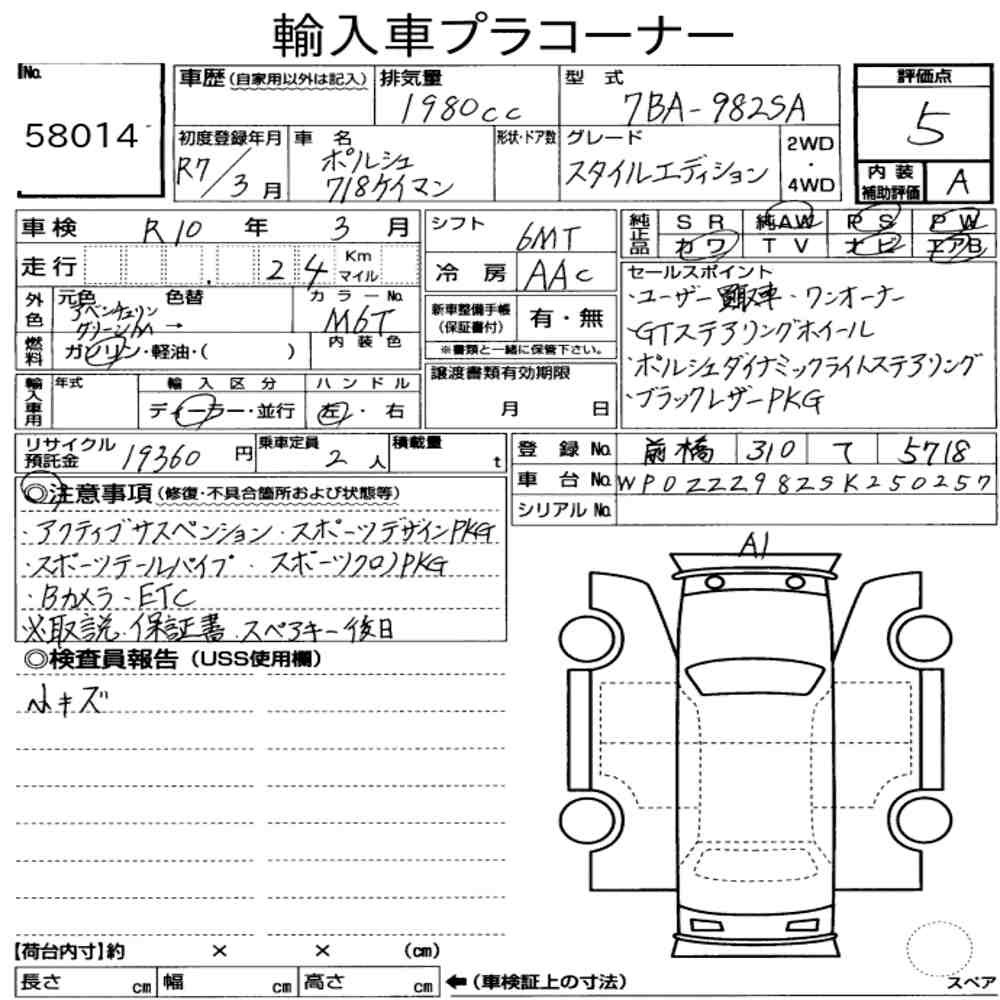 輸入車プラコーナー
No. 58014
車歴 (自家用以外は記入) 排気量 1980cc 型式 7BA-982SA 評価点 5
初度登録年月 R7/3月 車名 ポルシュ 718ケイマン 形状・ドア数 グレード スタイルエディション 2WD・4WD 内装補助評価 A
車検 R10年 3月 シフト 6MT 純正品 SR 純AW PS PW
カワ TV ナビ エアB
走行 24 Km マイル 冷房 AAC
外色 元色 アベンチュリングリーンM → 色替 カラーNo. M6T
燃料 ガソリン・軽油・( ) 内装色
新車整備手帳(保証書付) 有・無
※書類と一緒に保管下さい。
輸入車用 年式 輸入区分 ディーラー・並行 ハンドル 左・右
譲渡書類有効期限 月 日
セールスポイント
・ユーザー買取車・ワンオーナー
・GTステアリングホイール
・ポルシュダイナミックライトステアリング
・ブラックレザーPKG
リサイクル預託金 19360円 乗車定員 2人 積載量 t
登録No. 前橋 310 て 5718
車台No. WP0ZZZ982SK250257
シリアルNo.
◎注意事項 (修復・不具合箇所および状態等)
・アクティブサスペンション・スポーツデザインPKG
・スポーツテールパイプ・スポーツクロノPKG
・Bカメラ・ETC
※取説・保証書・スペアキー後日
◎検査員報告 (USS使用欄)
小キズ
A1
【荷台内寸】約 × × (cm)
長さ cm 幅 cm 高さ cm ←(車検証上の寸法)
スペア